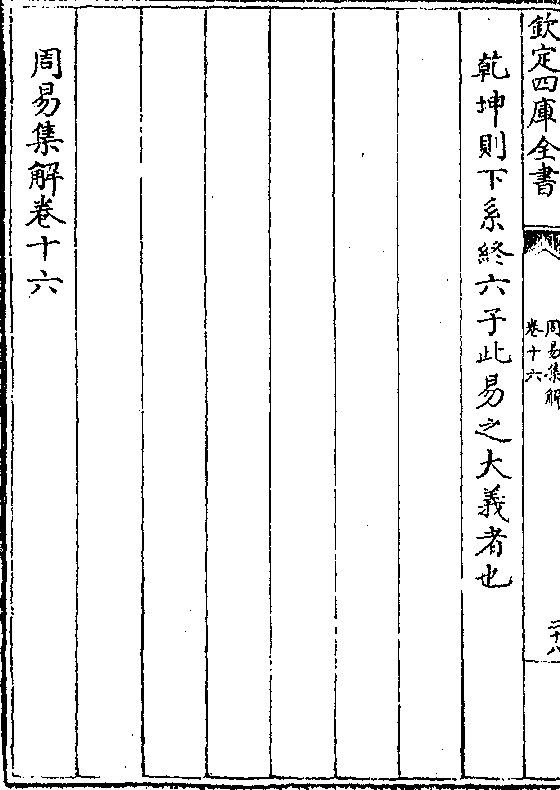 欽定四庫全書
周易集解
卷十六
二十八
乾坤則下系終六子此易之大義者也
周易集解卷十六